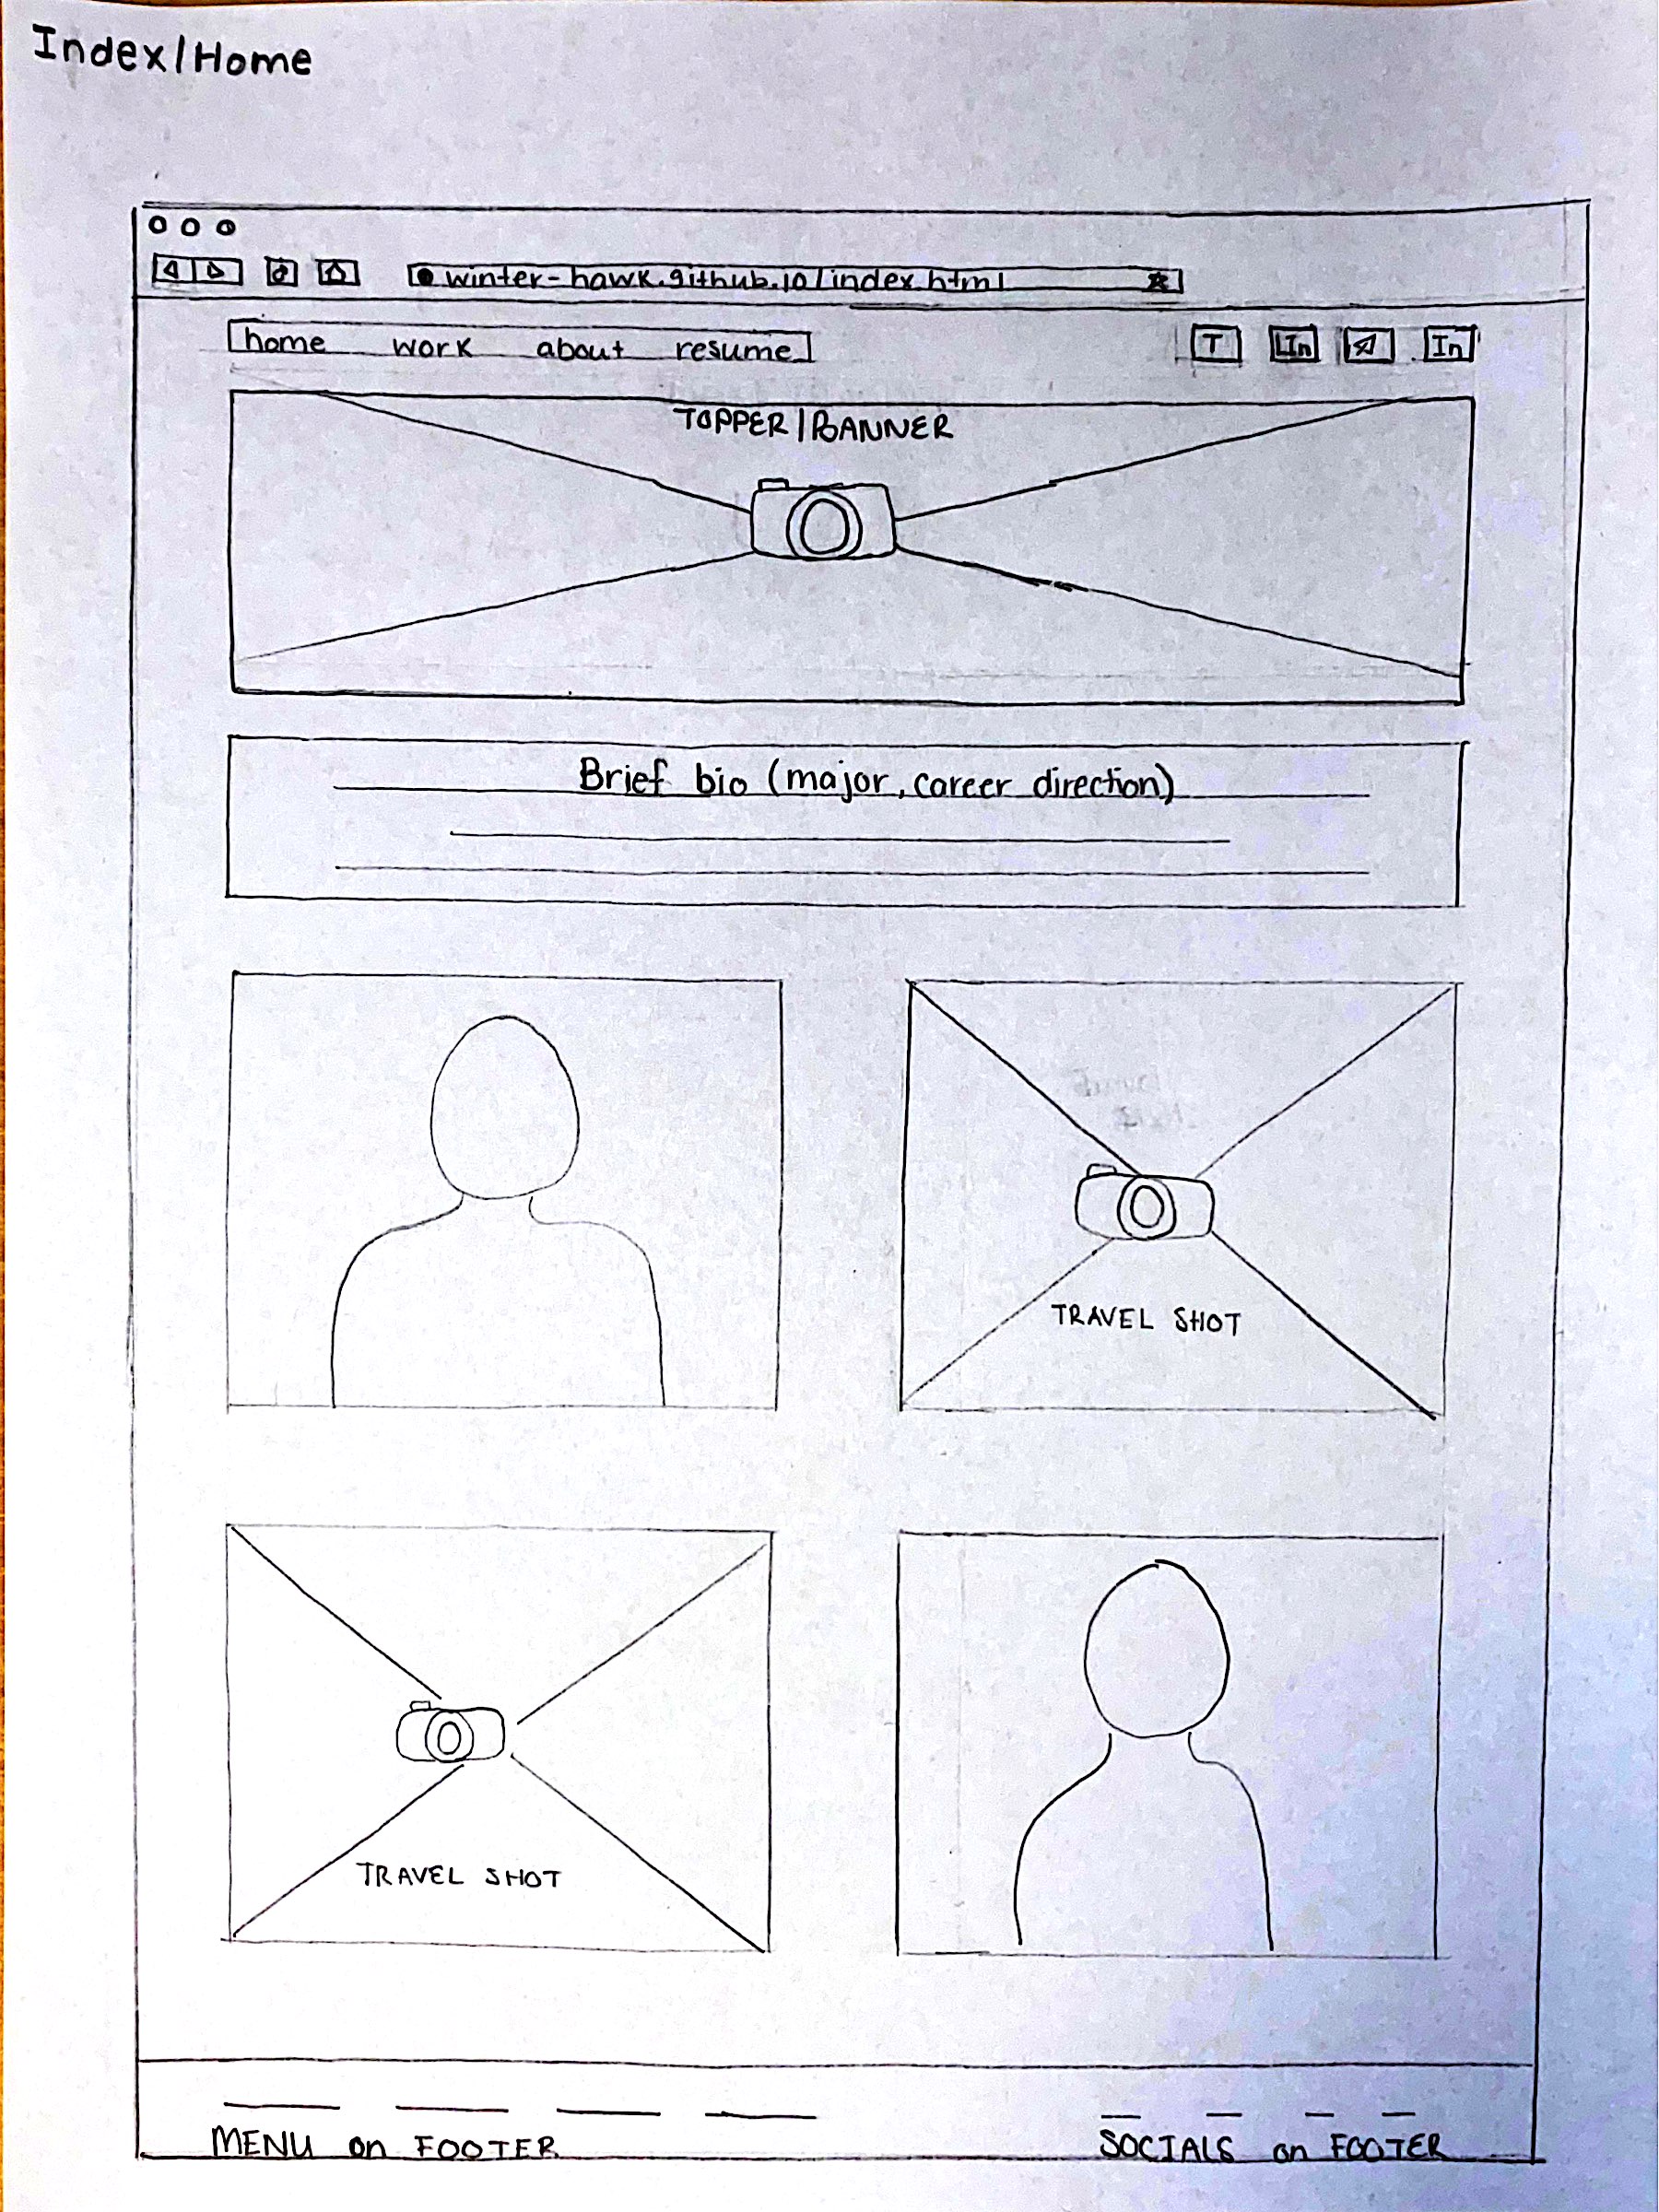 Index/Home
winter-hawk.github.io/index.html
home work about resume
T In In
TOPPER/BANNER
Brief bio (major, career direction)
TRAVEL SHOT
TRAVEL SHOT
MENU on FOOTER
SOCIALS on FOOTER